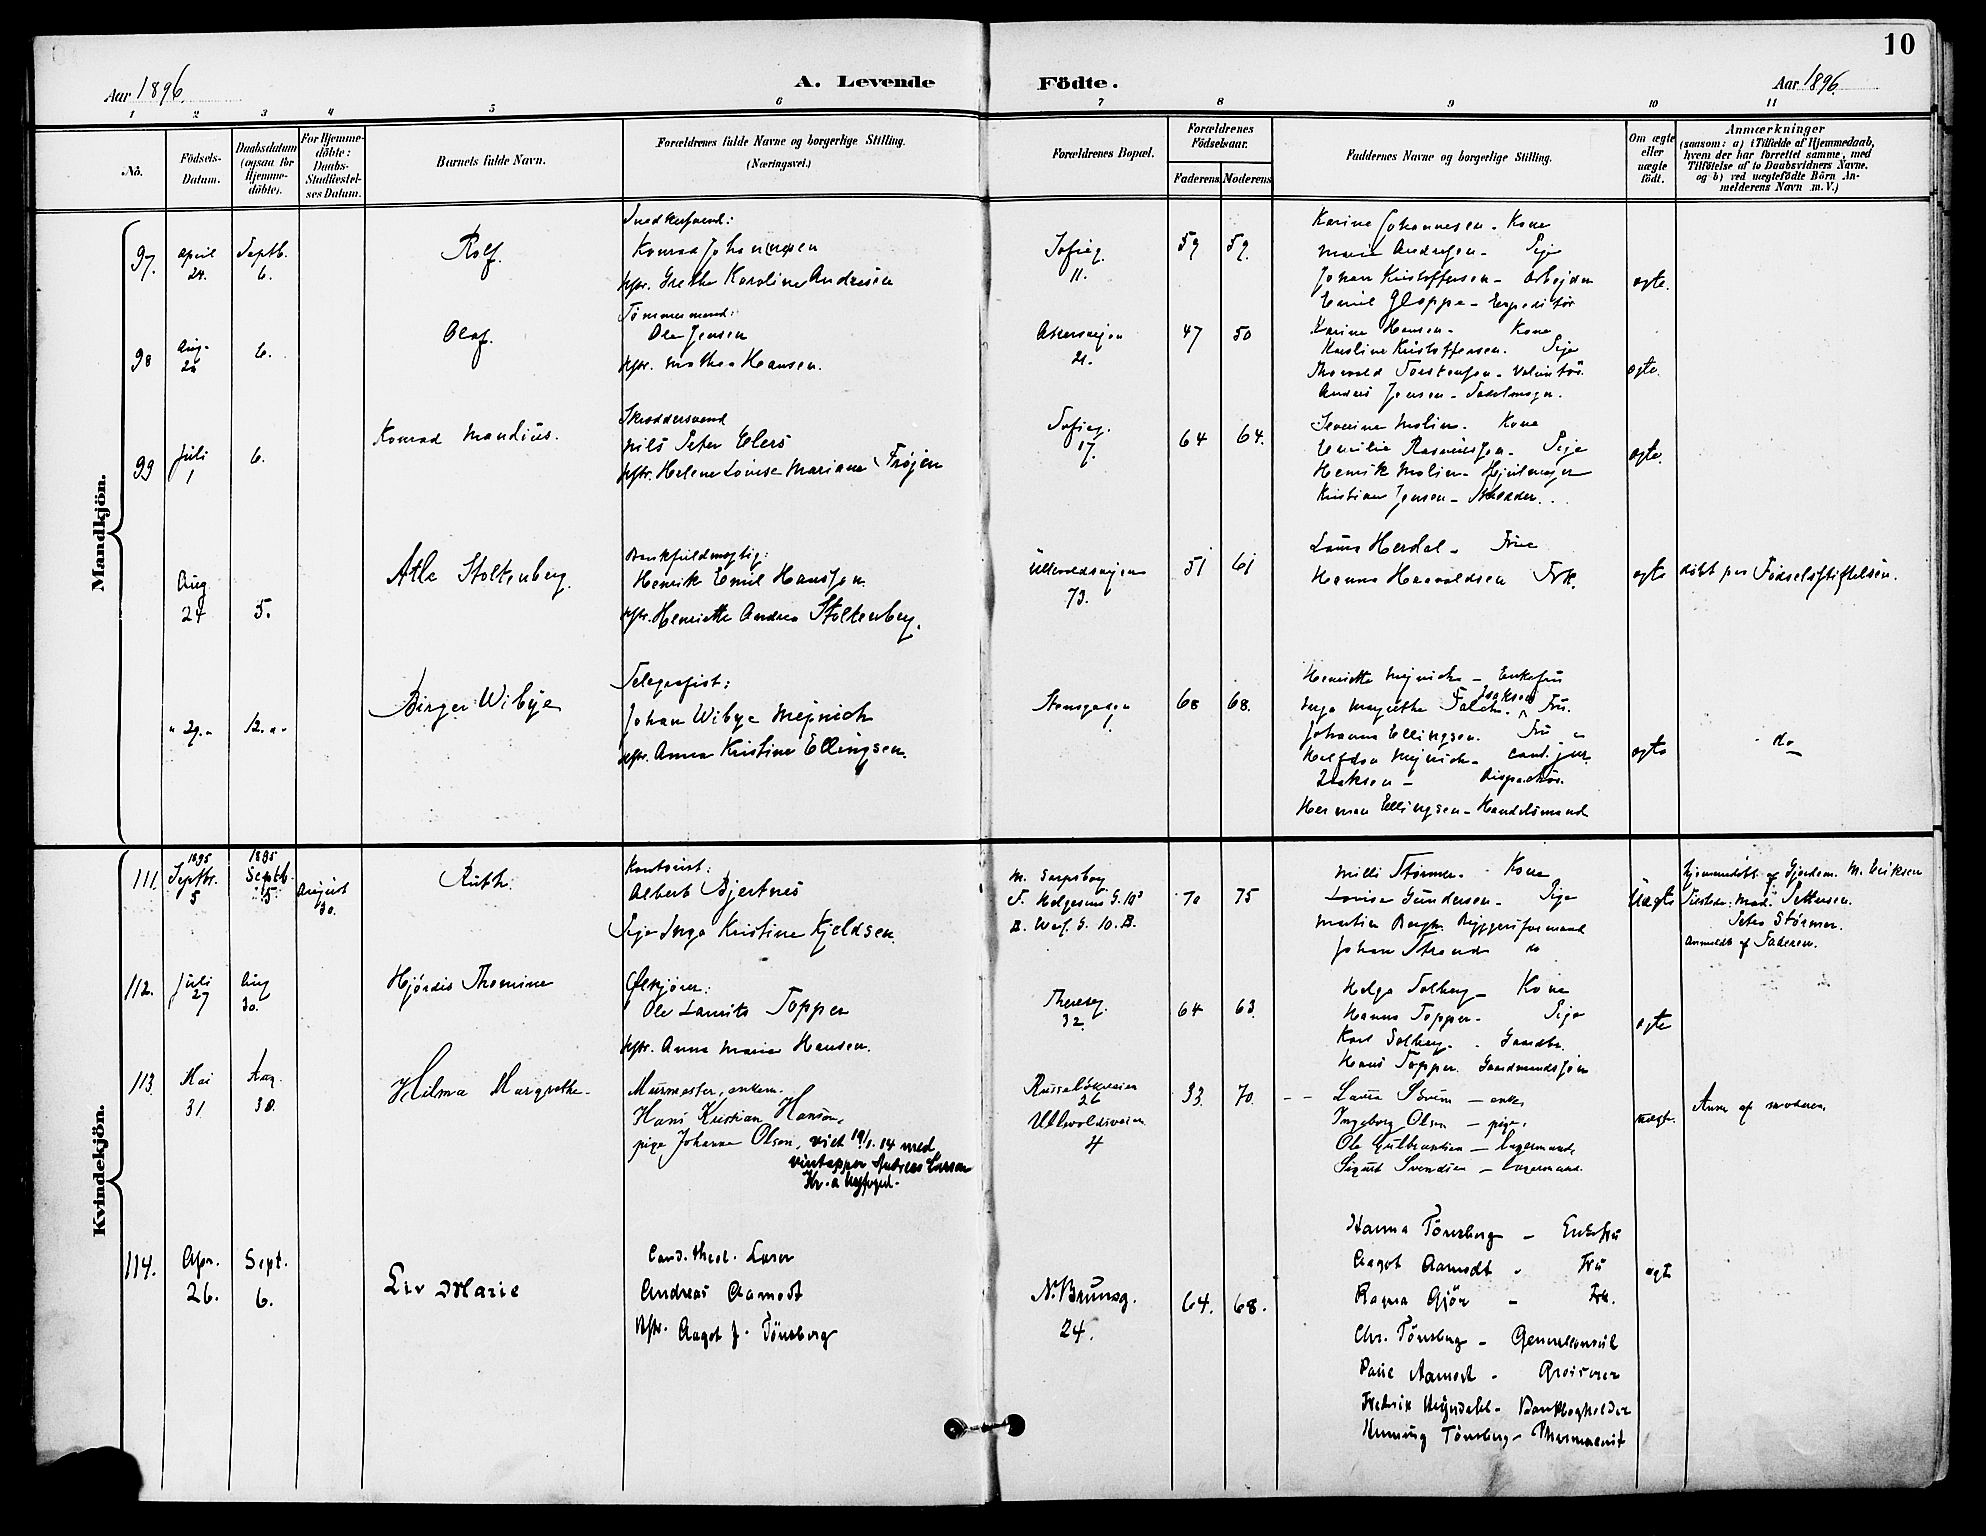 10
Aar 1896.
A. Levende
Födte.
Aar 1896.
1 2 3 4 5 6 7 8 9 10 11
No.
Födsels-
Datum.
Daabsdatum
(ogsaa for
Hjemme-
döbte).
For Hjemme-
döbte:
Daabs-
Stadfæstel-
ses Datum.
Barnets fulde Navn.
Forældrenes fulde Navne og borgerlige Stilling.
(Næringsvei.)
Forældrenes Bopæl.
Forældrenes
Födselsaar.
Faderens
Moderens
Faddernes Navne og borgerlige Stilling.
Om ægte
eller
uægte
födt.
Anmærkninger
(saasom: a) i Tilfælde af Hjemmedaab,
hvem der har forrettet samme, med
Tilföielse af to Daabsvidners Navne.
og b) ved uægtefödte Börn An-
melderens Navn m. V.)
Mandkjön.
97.
April
24.
Septb.
6.
Rolf.
Snedkersvend:
Konrad Johannesen
Hstr. Grethe Karoline Andresen
Sofieg.
11.
59
59.
Karine Johannesen - Kone
Marie Andresen - Pige
Johan Kristoffersen - Arbejder
Emil Gloppe - Expeditör
ægte.
98
Aug.
6.
Olaf.
Tömmermand:
Ole Jensen
Hstr. Mathea Hansen.
Akersvejen
21.
47
50
Karine Hansen - Kone
Karoline Kristoffersen. Pige
Thorvald Torstensen - Volontör
Anders Jensen - Sadelmager.
ægte.
99
Juli
1
6.
Konrad Mandius.
Skræddersvend
Nils Peter Elers
Hstr. Helene Lovise Mariane Frøjen
Sofieg.
17.
64
64.
Severine Molin. Kone
Emilie Rasmussen - Pige
Henrik Molin - Hjulmager
Kristian Jensen - Skrædder.
ægte.
Aug
24
5.
Atle Stoltenberg.
Bankfuldmægtig:
Henrik Emil Hansson
Hstr. Henriette Andrea Stoltenberg.
Ullevoldsvejen
73.
51
61
Laura Herdal - Frue
Hanna Harvoldsen Frk.
ægte
döbt paa Fødselsstiftelsen.
" 29. "
12. " "
Birger Wibye
Telegrafist:
Johan Wibye Mejnich
Hstr. Anna Kristine Ellingsen.
Stensgaden
1.
68
68.
Henriette Mejnich - Enkefru
Isaksen
Inga Margrethe Falch. Fru.
Johanna Ellingsen. Fru
Halfdan Mejnich - cand. jur.
Isaksen - Dispachör.
Herman Ellingsen - Handelsmand
ægte
do
Kvindekjön.
111.
1895
Septbr.
5
1895
Septb.
15.
August
30.
Ruth.
Kontorist:
Albert Bjertnes
Pige Inga Kristine Kjeldsen.
M. Sarpsborg
F. Helgesens G. 10
B. Werg. G. 10. B.
70
75
Milli Størmer - Kone
Lovise Gundersen - Pige
Martin Bergh. Byggeriformand
Johan Strand do
Uægte
Hjemmedöbt af Gjordem. M. Eriksen
Tilstede: Mad. Pettersen.
Petra Størmer.
Anmeldt af Faderen.
112.
Juli
27
Aug
30.
Hjördis Thomine
Ølkjører:
Ole Laurits Topper
Hstr. Anna Marie Hansen.
Thereseg.
32.
64
63.
Helga Solberg - Kone
Hanna Topper - Pige
Karl Solberg - Gaardbr.
Hans Topper Gaardmandssøn
ægte
113
Mai
31
Aug.
30.
Hilma Margrethe.
Murmester, enkem.
Hans Kristian Hansen,
pige Johanne Olsen, viet 19/1. 14 med
vintapper Andreas Larsen
Kr.a byfoged.
Russeløkveien
26
Ullevoldsveien
4
33.
70.
Laura Sörum - enke,
Ingeborg Olsen - pige,
Ole Gulbrandsen - lagermand,
Sigurd Svendsen - lagermand.
uægte.
Anm. af moderen.
114.
Apr.
26.
Sept.
6.
Liv Marie
Cand. theol. Lærer
Andreas Aamodt
Hstr. Aagot J. Tönsberg
N. Brunsg.
24.
64.
68.
Hanna Tönsberg - Enkefru
Aagot Aamodt - Fru
Ragna Gjör - Frk.
Chr. Tönsberg - Generalkonsul
Paul Aamodt - Grosserer
Fredrik Meÿndahl - Bankbogholder
Henning Tönsberg - Pharmaceut
ægte